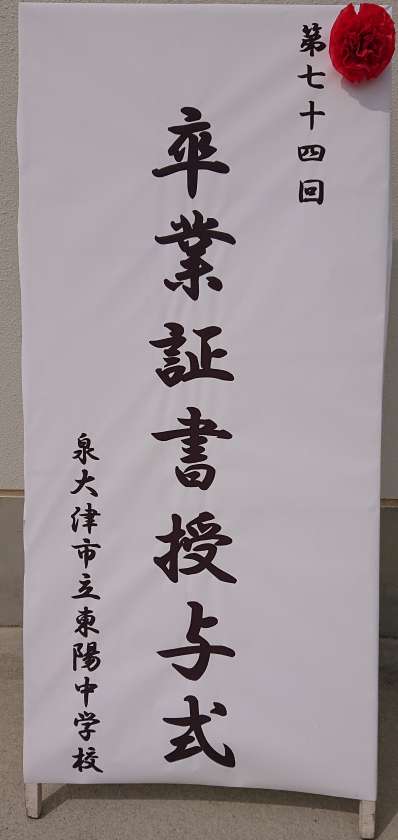 第七十四回
卒業証書授与式
泉大津市立東陽中学校